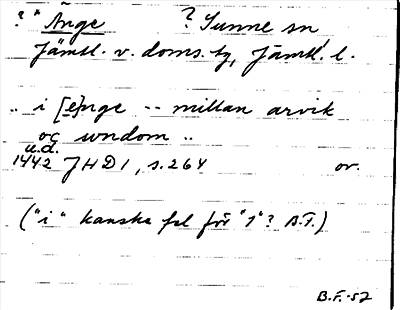 ?* Änge ? Sunne sn
Jämtl. v. doms. tg, Jämtl. l.
.. i [e]nge -- millan arvik
og undom ..
u.d.
1442 JHD 1, s. 264 or.
("i" kanske fel för "1"? B.F.)
B.F.-52